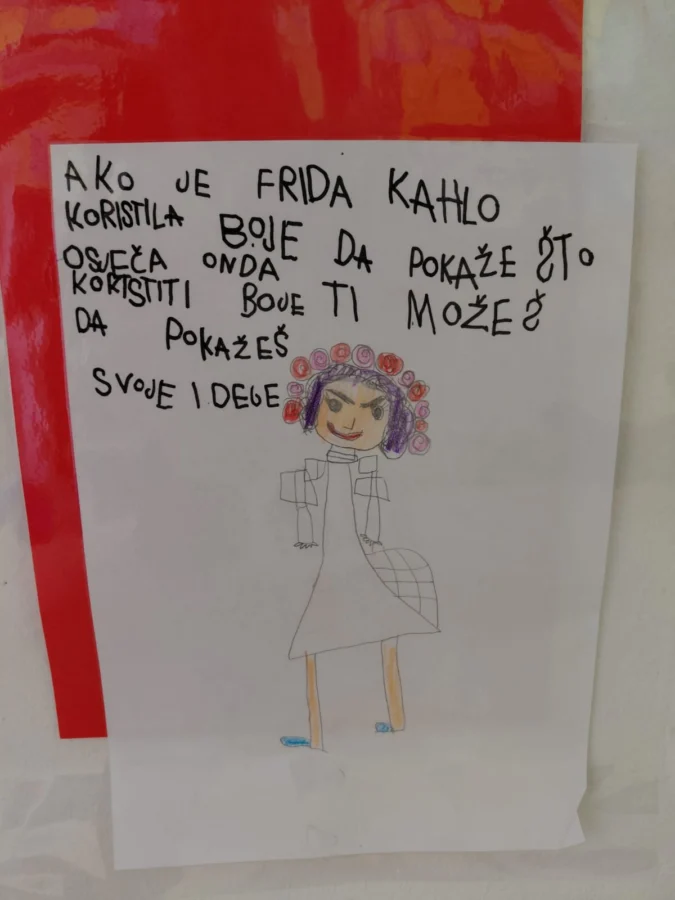 AKO JE FRIDA KAHLO
KORISTILA BOJE DA POKAŽE ŠTO
OSJEČA ONDA
KORISTITI BOJE TI MOŽEŠ
DA POKAŽEŠ
SVOJE IDEJE